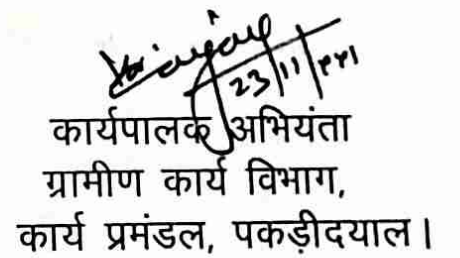 23/11/
कार्यपालक अभियंता
ग्रामीण कार्य विभाग,
कार्य प्रमंडल, पकड़ीदयाल।